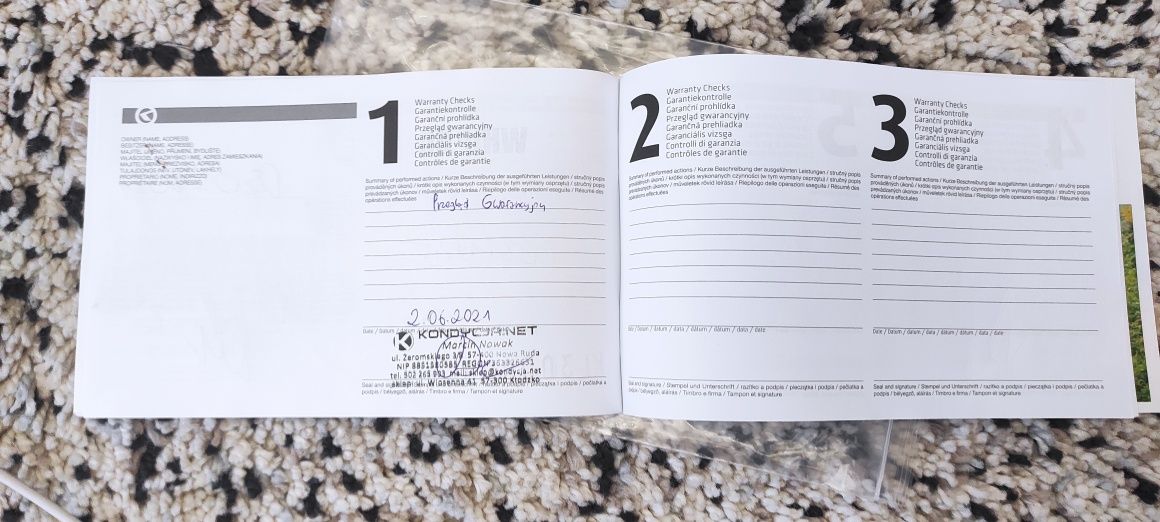 OWNER (NAME, ADDRESS)
BESITZER (NAME, ADRESSE)
MAJITEL (JMÉNO, PŘÍJMENÍ, BYDLIŠTĚ)
WŁAŚCICIEL (NAZWISKO I IMIĘ, ADRES ZAMIESZKANIA)
MAJITEL (MENO, PRIEZVISKO, ADRESA)
TULAJDONOS (NÉV, UTÓNÉV, LAKHELY)
PROPRIETARIO (NOME, INDIRIZZO)
PROPRIÉTAIRE (NOM, ADRESSE)
1
Warranty Checks
Garantiekontrolle
Garanční prohlídka
Przegląd gwarancyjny
Garančná prehliadka
Garanciális vizsga
Controlli di garanzia
Contrôles de garantie
Summary of performed actions / Kurze Beschreibung der ausgeführten Leistungen / stručný popis
prováděných úkonů / krótki opis wykonanych czynności (w tym wymiany osprzętu) / stručný popis
prevádzkaných úkonov / műveletek rövid leírása / Riepilogo delle operazioni eseguite / Résumé des
opérations effectuées
Przegląd Gwarancyjny
2.06.2021
Date / Datum / datum / data / dátum / dátum / data / date
KONDYCJA.NET
Marcin Nowak
ul. Żeromskiego 57-400 Nowa Ruda
NIP REGON
tel. 502 265 mail: sklep@kondycja.net
sklep: ul. Wiosenna 41 57-300 Kłodzko
Seal and signature / Stempel und Unterschrift / razítko a podpis / pieczątka i podpis / pečiatka a
podpis / bélyegző, aláírás / Timbro e firma / Tampon et signature
2
Warranty Checks
Garantiekontrolle
Garanční prohlídka
Przegląd gwarancyjny
Garančná prehliadka
Garanciális vizsga
Controlli di garanzia
Contrôles de garantie
Summary of performed actions / Kurze Beschreibung der ausgeführten Leistungen / stručný popis
prováděných úkonů / krótki opis wykonanych czynności (w tym wymiany osprzętu) / stručný popis
prevádzkaných úkonov / műveletek rövid leírása / Riepilogo delle operazioni eseguite / Résumé des
opérations effectuées
Date / Datum / datum / data / dátum / dátum / data / date
Seal and signature / Stempel und Unterschrift / razítko a podpis / pieczątka i podpis / pečiatka a
podpis / bélyegző, aláírás / Timbro e firma / Tampon et signature
3
Warranty Checks
Garantiekontrolle
Garanční prohlídka
Przegląd gwarancyjny
Garančná prehliadka
Garanciális vizsga
Controlli di garanzia
Contrôles de garantie
Summary of performed actions / Kurze Beschreibung der ausgeführten Leistungen / stručný popis
prováděných úkonů / krótki opis wykonanych czynności (w tym wymiany osprzętu) / stručný popis
prevádzkaných úkonov / műveletek rövid leírása / Riepilogo delle operazioni eseguite / Résumé des
opérations effectuées
Date / Datum / datum / data / dátum / dátum / data / date
Seal and signature / Stempel und Unterschrift / razítko a podpis / pieczątka i podpis / pečiatka a
podpis / bélyegző, aláírás / Timbro e firma / Tampon et signature